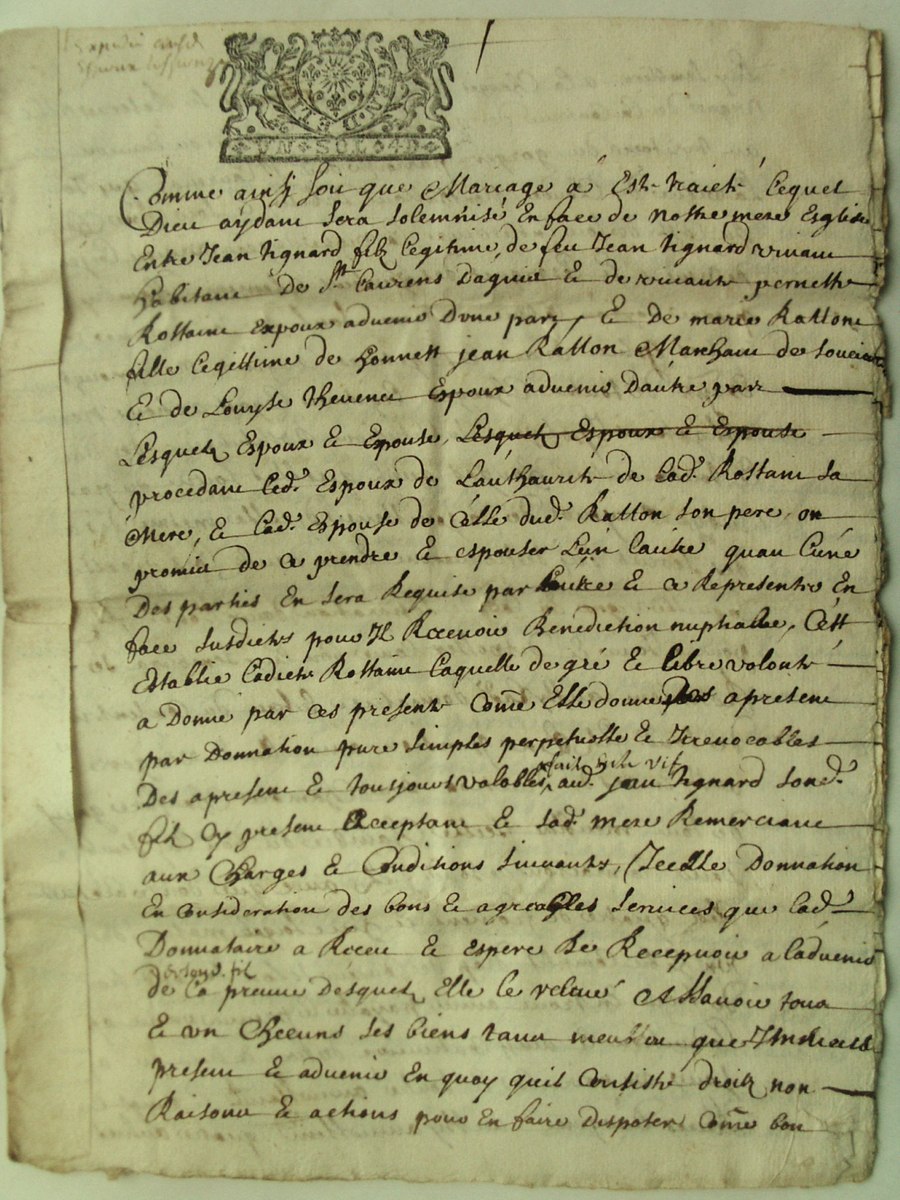 VN SOL 4D
Comme ainsy soit que Mariage a Esté traicté Lequel
Dieu aydant sera solemnisé En face de nostre mere Esglise
Entre Jean Vignard filz Legitime de feu Jean Vignard vivant
habitant De St Laurens Dagnie & de vivante pernette
Rostaine Expoux advenir Dune part, & De marie Rattone
fille Legittime de honnest jean Ratton Marchant de
& de Louyse Thevenet Espoux advenir Dautre part
Lesquelz Espoux & Espouse, Lesquelz Espoux & Espouse
procedant Led. Espoux de Lauthaurité de Lad. Rostaine sa
Mere, & Lad. Espouse de Celle dud. Ratton son pere on
promis de ce prendre & espouser Lun Lautre quan Lune
Des parties En sera Requise par Lautre & ce Representer En
face susdicte pour Il Recevoir Benediction nuptialle, Cest
Establie Ladicte Rostaine Laquelle de gré & libre volonté
a Donné par ces presente Come Elle donne apresent
par Donnation pure simples perpetuelle & Irrevocables
fait vif
Des apresent & tousjours valables, aud. jean Vignard sond.
filz Cy present Acceptant & sad. mere Remerciant
aux Charges & Conditions suivante, Icelle Donnation
En Consideration des bons & agreables services que Lad.
Donnataire a Receu & espere De Recepvoir a Ladvenir
de sond. filz
de La preuve Desquelz Elle Le relevé A Scavoir tous
& un Checuns ses biens tant meubles que Immeubles
present & advenir En quoy quil Consiste droitz nom
Raisons & actions pour En faire Disposer Come bon